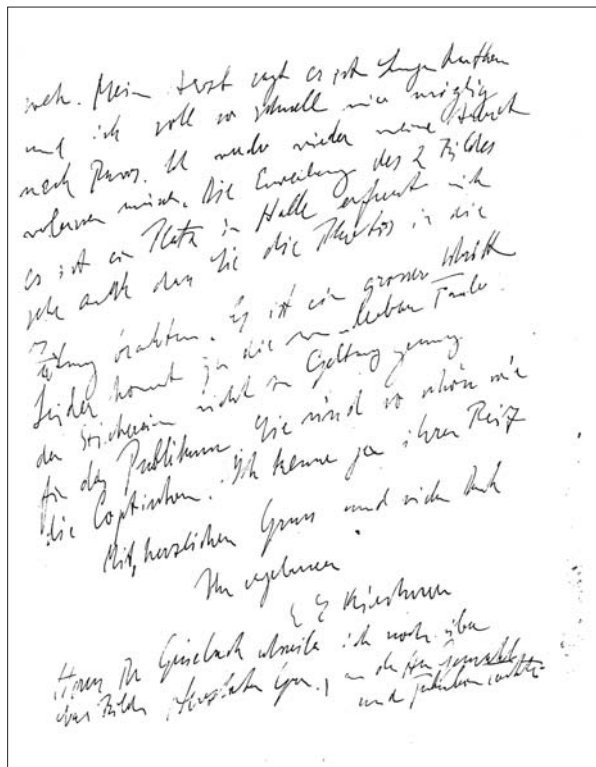 weh. Mein Arzt sagt es ist
und ich soll so schnell wie möglig
nach Davos. Ich werde wieder meine Arbeit
müssen. Die Erwerbung des 2 Bildes
es ist ein Platz in Halle erfreut mich
sehr auch dass Sie die Photos in die
Zeitung brachten. Es ist ein grosser Schritt
Leider kommt ja die Farbe
der Stickereien nicht zur Geltung genug
für das Publikum. Sie sind so schön wie
die Coptischen. Ich kenne ja ihren Reiz
Mit herzlichem Gruss und vielen Dank
Ihr ergebener
E L Kirchner
Herrn Dr Grisebach schreibe ich noch über
das Bild. an die
und